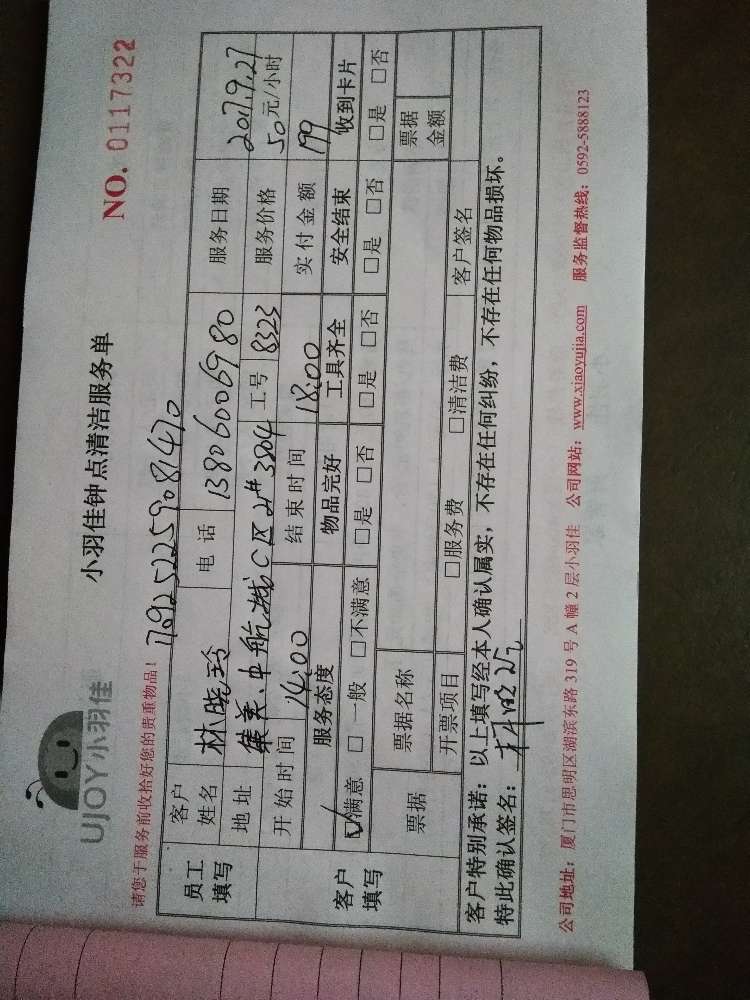 UJOY小羽佳
小羽佳钟点清洁服务单
NO. 0117322
请您于服务前收拾好您的贵重物品！
1709252259081470
员工填写
客户姓名 林晓玲 电话 13806006980 服务日期 2017.9.27
地址 集美、中航城C区2#3804 工号 8323 服务价格 50元/小时
客户填写
开始时间 14:00 结束时间 18:00 实付金额 199
服务态度 物品完好 工具齐全 安全结束 收到卡片
☑满意 □一般 □不满意 □是 □否 □是 □否 □是 □否 □是 □否
票据 票据名称 票据金额
开票项目 □服务费 □清洁费 客户签名
客户特别承诺：以上填写经本人确认属实，不存在任何纠纷，不存在任何物品损坏。
特此确认签名：
公司地址：厦门市思明区湖滨东路 319 号 A 幢 2 层小羽佳 公司网站：www.xiaoyujia.com 服务监督热线：0592-5888123